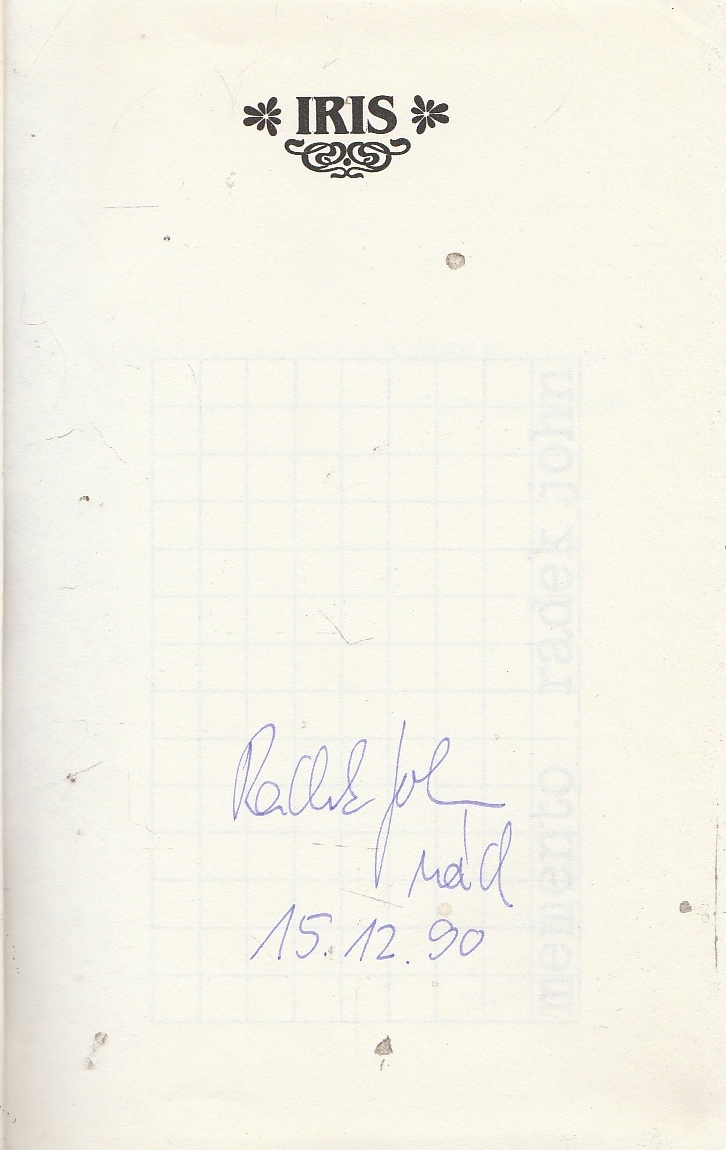 IRIS
memento radek john
Radek John
rád
15.12.90